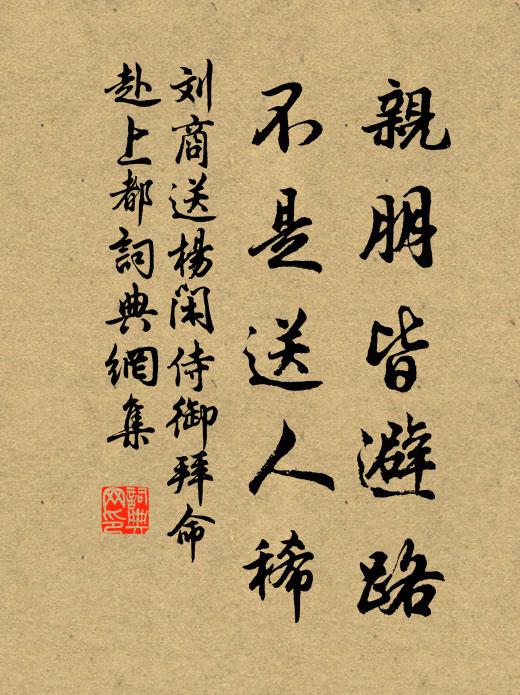 親朋皆避路
不是送人稀
刘商送楊闲侍御拜命
赴上都詞典網集
詞典网印